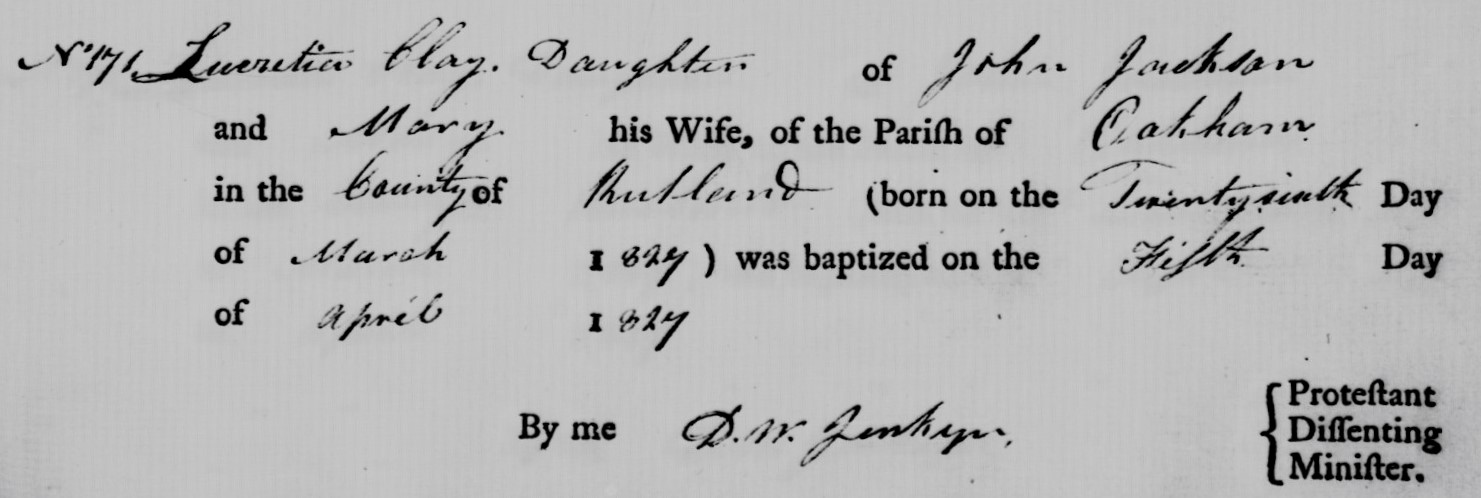 No 171. Lucretia Clay. Daughter of John Jackson
and Mary his Wife, of the Pariſh of Oakham
in the County of Rutland (born on the Twentysixth Day
of March 1827) was baptized on the Fifth Day
of April 1827
By me D. W. Jenkyn.
Proteſtant
Diſſenting
Miniſter.